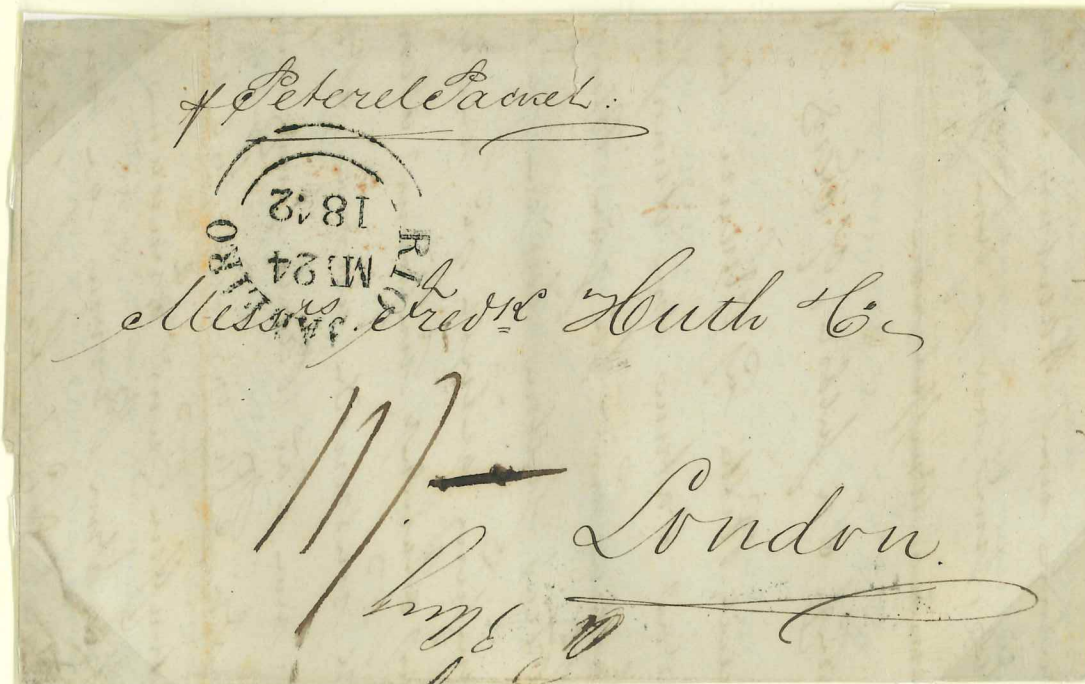 ⅌ Peterel Packet.
RIO JANEIRO
MY 24
Messrs. Fredk Huth & Co.
3/-
London.